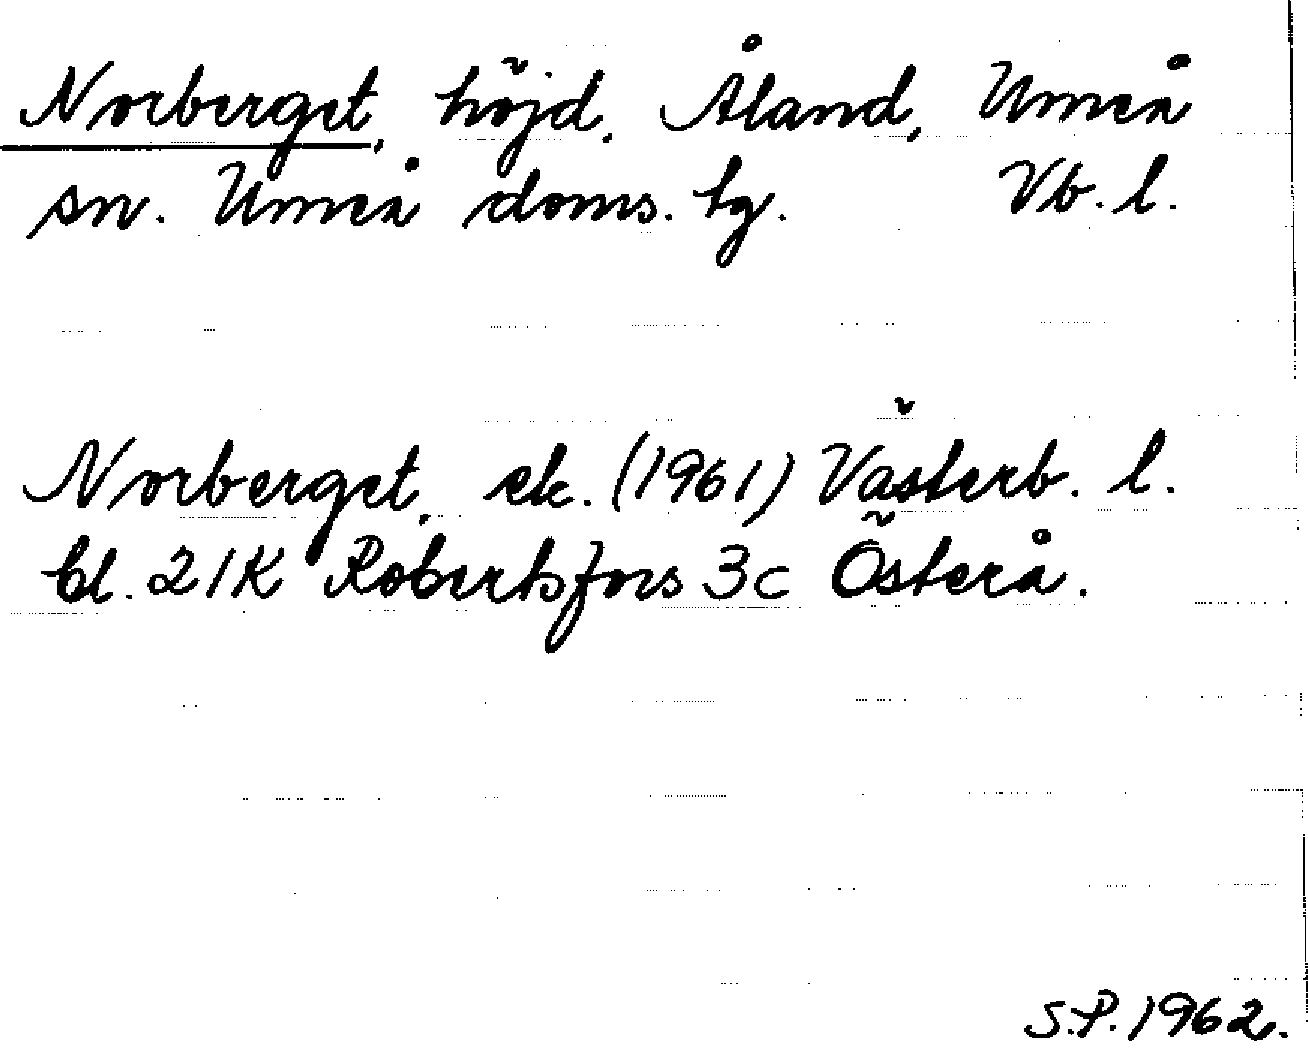 Norberget, höjd. Åland, Umeå
sn. Umeå doms. tg. Vb. l.
Norberget, ek. (1961) Västerb. l.
bl. 21K Robertsfors 3c Österå.
S.P. 1962.